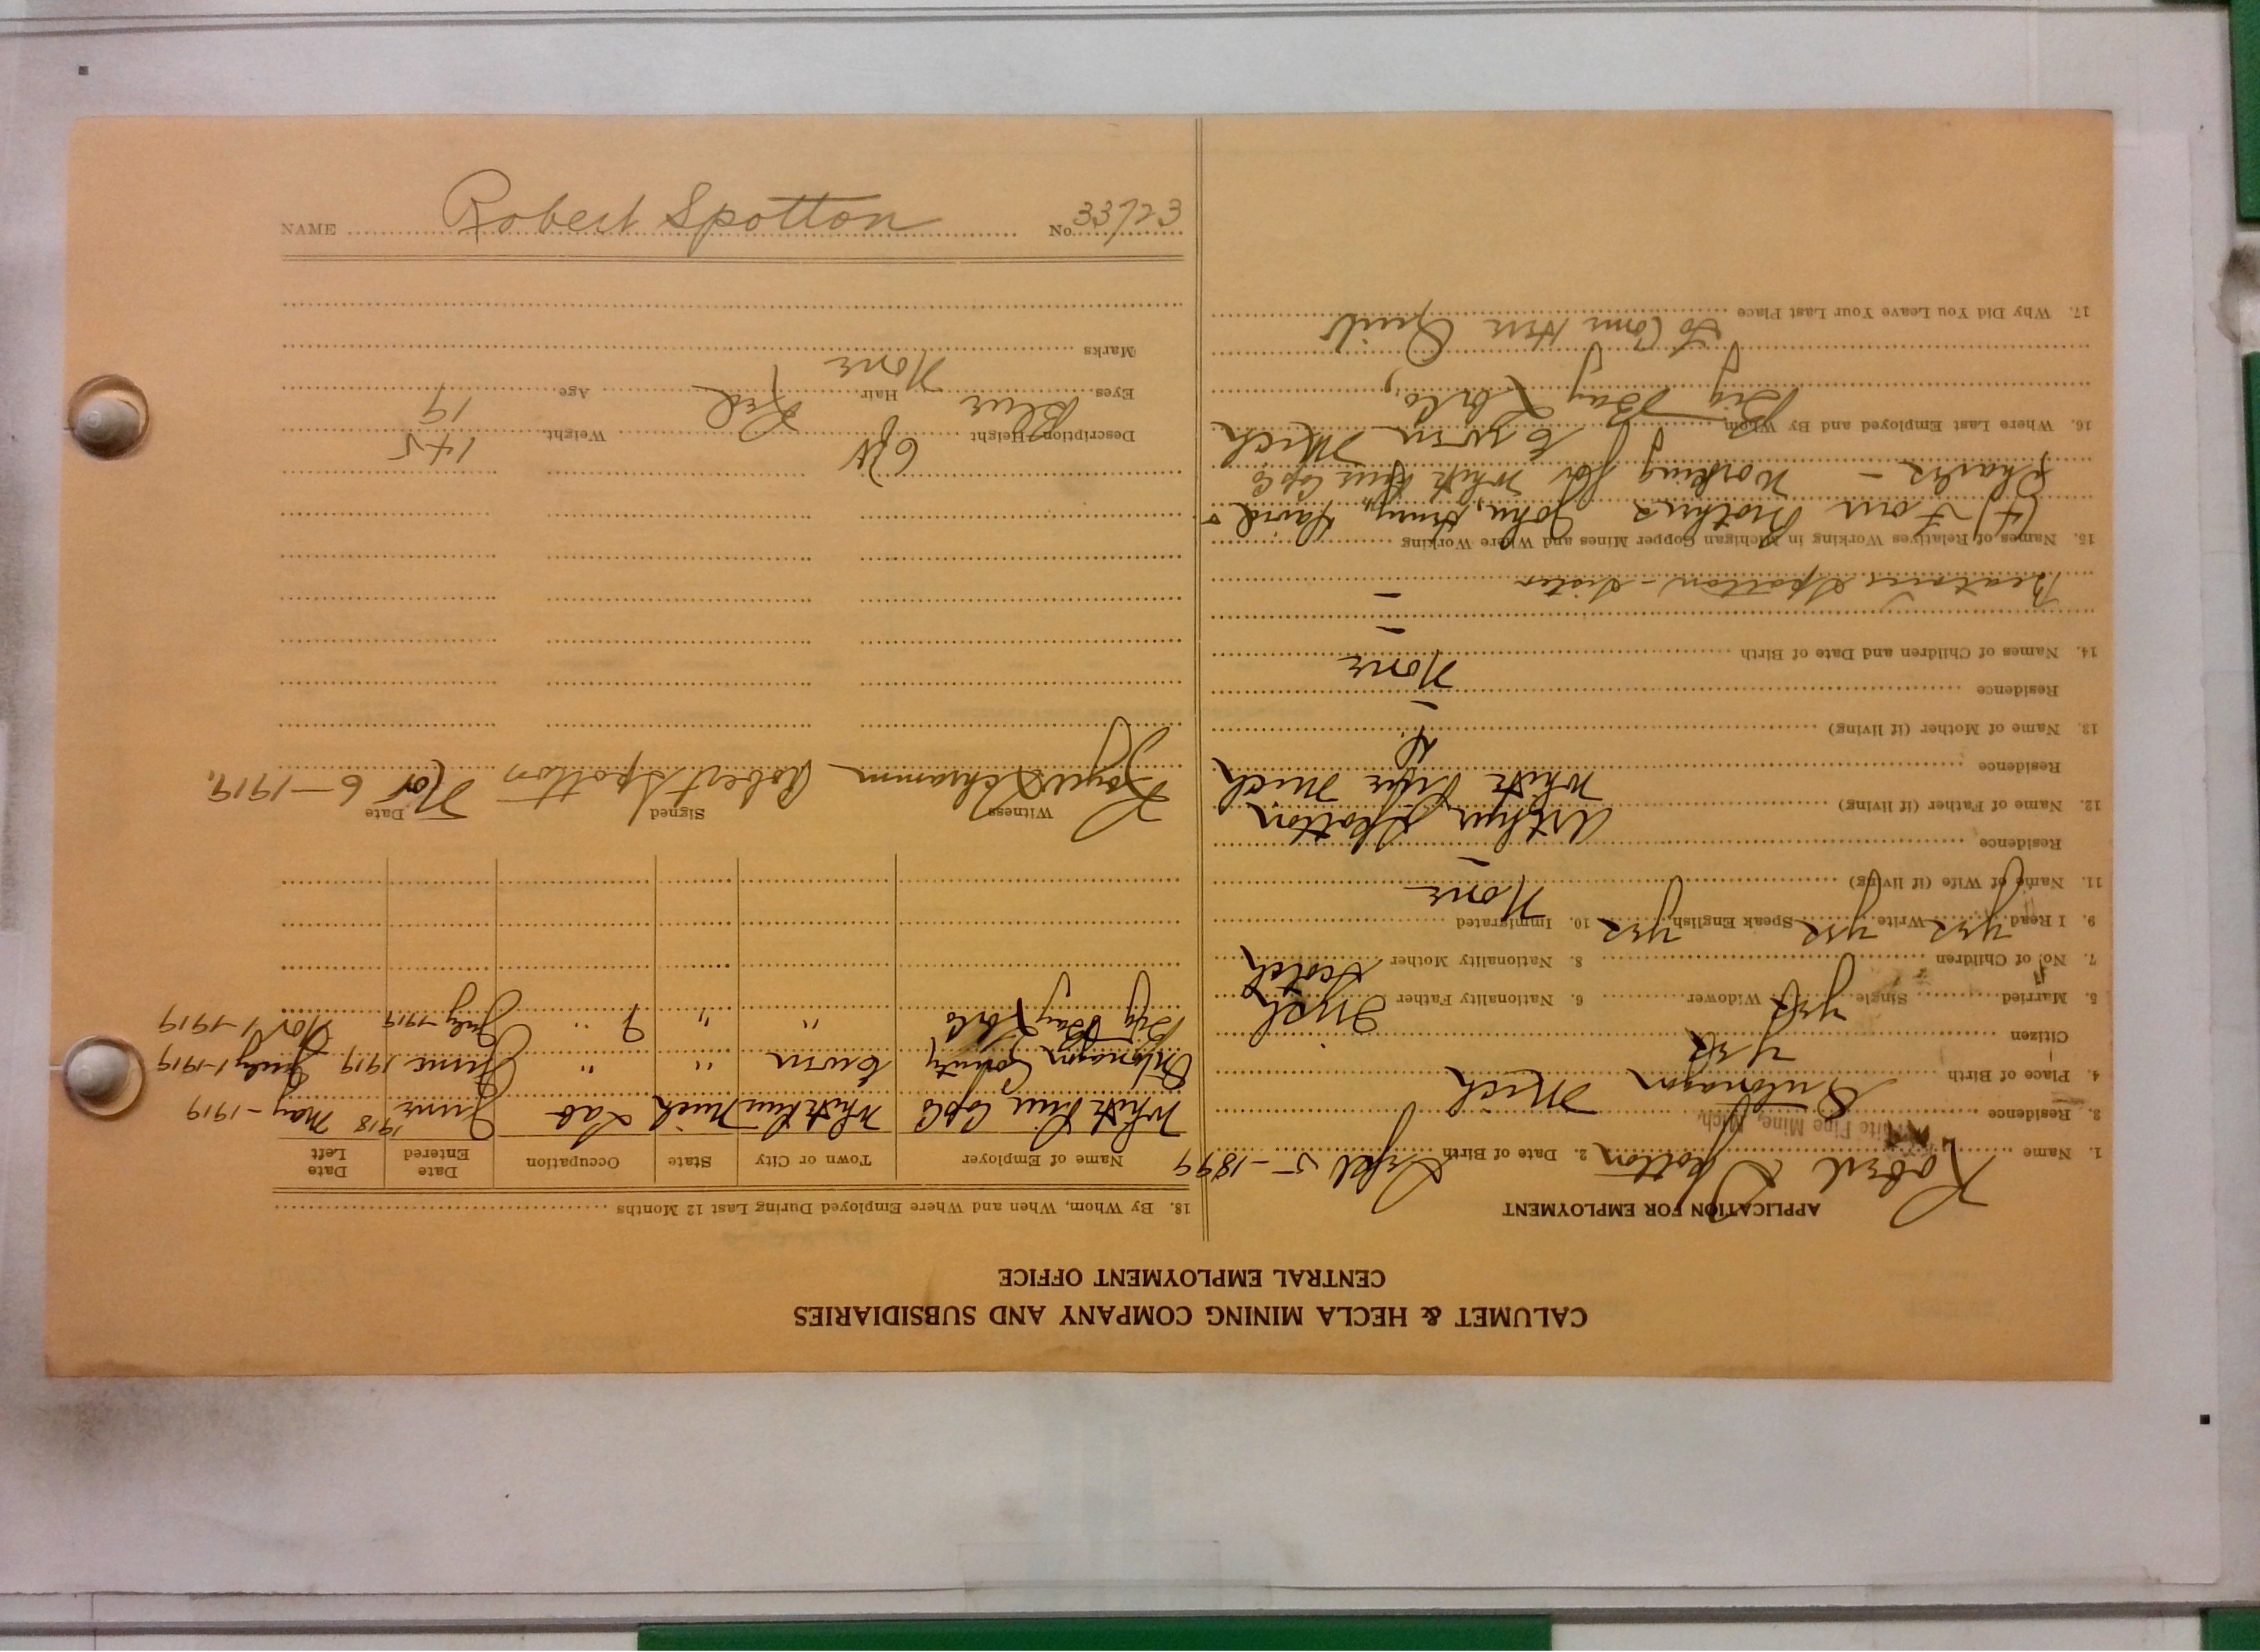 CALUMET & HECLA MINING COMPANY AND SUBSIDIARIES
CENTRAL EMPLOYMENT OFFICE
APPLICATION FOR EMPLOYMENT
1. Name Robert Spotton 2. Date of Birth Sept 5-1899
3. Residence White Pine Mine, Mich.
4. Place of Birth Ontonagon Mich
Citizen yes
5. Married Single yes Widower 6. Nationality Father Irish
7. No. of Children 8. Nationality Mother Scotch
9. I Read yes Write yes Speak English yes 10. Immigrated
11. Name of Wife (if living) None
Residence –
12. Name of Father (if living) Arthur Spotton
Residence White Pine Mich
13. Name of Mother (if living) D.
Residence –
14. Names of Children and Date of Birth None
–
–
Beatrice Spotton - sister
15. Names of Relatives Working in Michigan Copper Mines and Where Working
(4) Four Brothers John, Henry, David &
Charles - Working for White Pine Cop Co
16. Where Last Employed and By Whom Ewen Mich
Big Bay Lbr Co.,
17. Why Did You Leave Your Last Place
To Come Here Quit
18. By Whom, When and Where Employed During Last 12 Months
Name of Employer Town or City State Occupation Date Entered Date Left
White Pine Cop Co White Pine Mich Lab June 1918 May-1919
Ontonagon County Ewen " " June 1919 July 1-1919
Big Bay Lbr Co " " " July-1919 Nov 1-1919
Witness Signed Date
Schramm Robert Spotton Nov 6-1919.
Description Height Weight 145
Eyes Blue Hair Red Age 19
Marks None
NAME Robert Spotton No. 33723